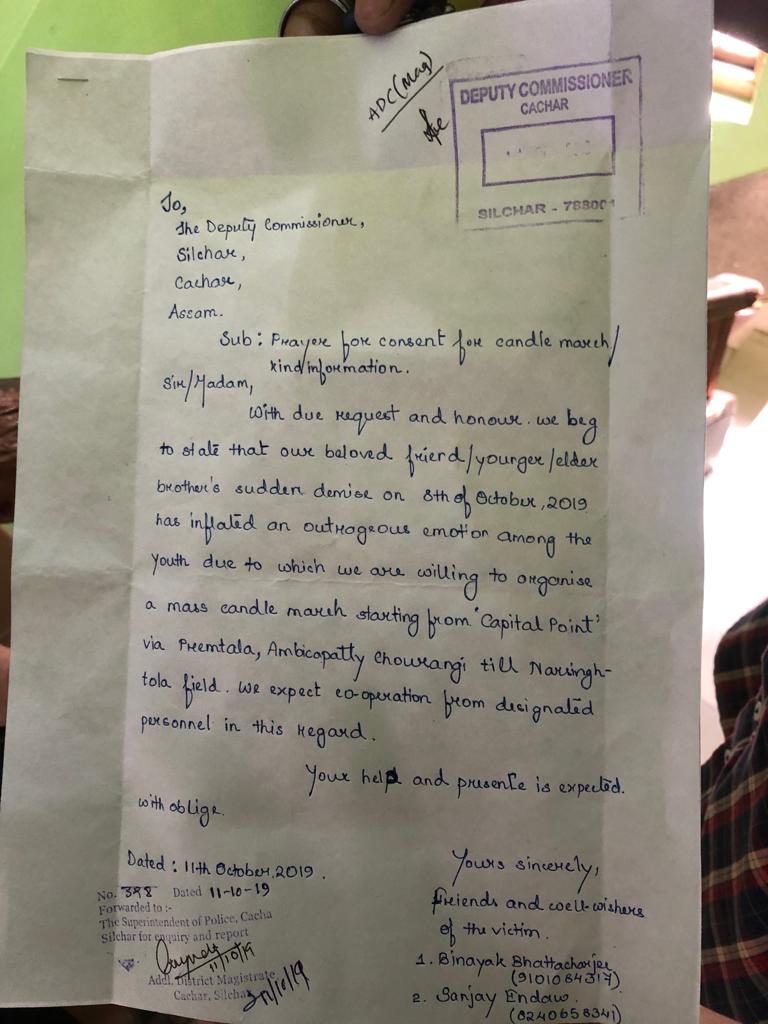 ADC (Mag)
DEPUTY COMMISSIONER
CACHAR
SILCHAR - 788001
To,
The Deputy Commissioner,
Silchar,
Cachar,
Assam.
Sub : Prayer for consent for candle march/
kind information.
Sir/Madam,
With due request and honour. we beg
to state that our beloved friend/younger/elder
brother's sudden demise on 8th of October, 2019
has inflated an outrageous emotion among the
youth due to which we are willing to organise
a mass candle march starting from 'Capital Point'
via Premtala, Ambicapatty Chowrangi till Narsingh-
tola field. We expect co-operation from designated
personnel in this regard.
Your help and presence is expected.
with oblige.
Dated : 11th October, 2019.
Yours sincerely,
Friends and well-wishers
of the victim.
1. Binayak Bhattacharjee
(9101084317)
2. Sanjay Endaw.
(8240658341)
No. 398 Dated 11-10-19
Forwarded to :-
The Superintendent of Police, Cacha
Silchar for enquiry and report
11/10/19
Addl. District Magistrate,
Cachar, Silchar
11/10/19